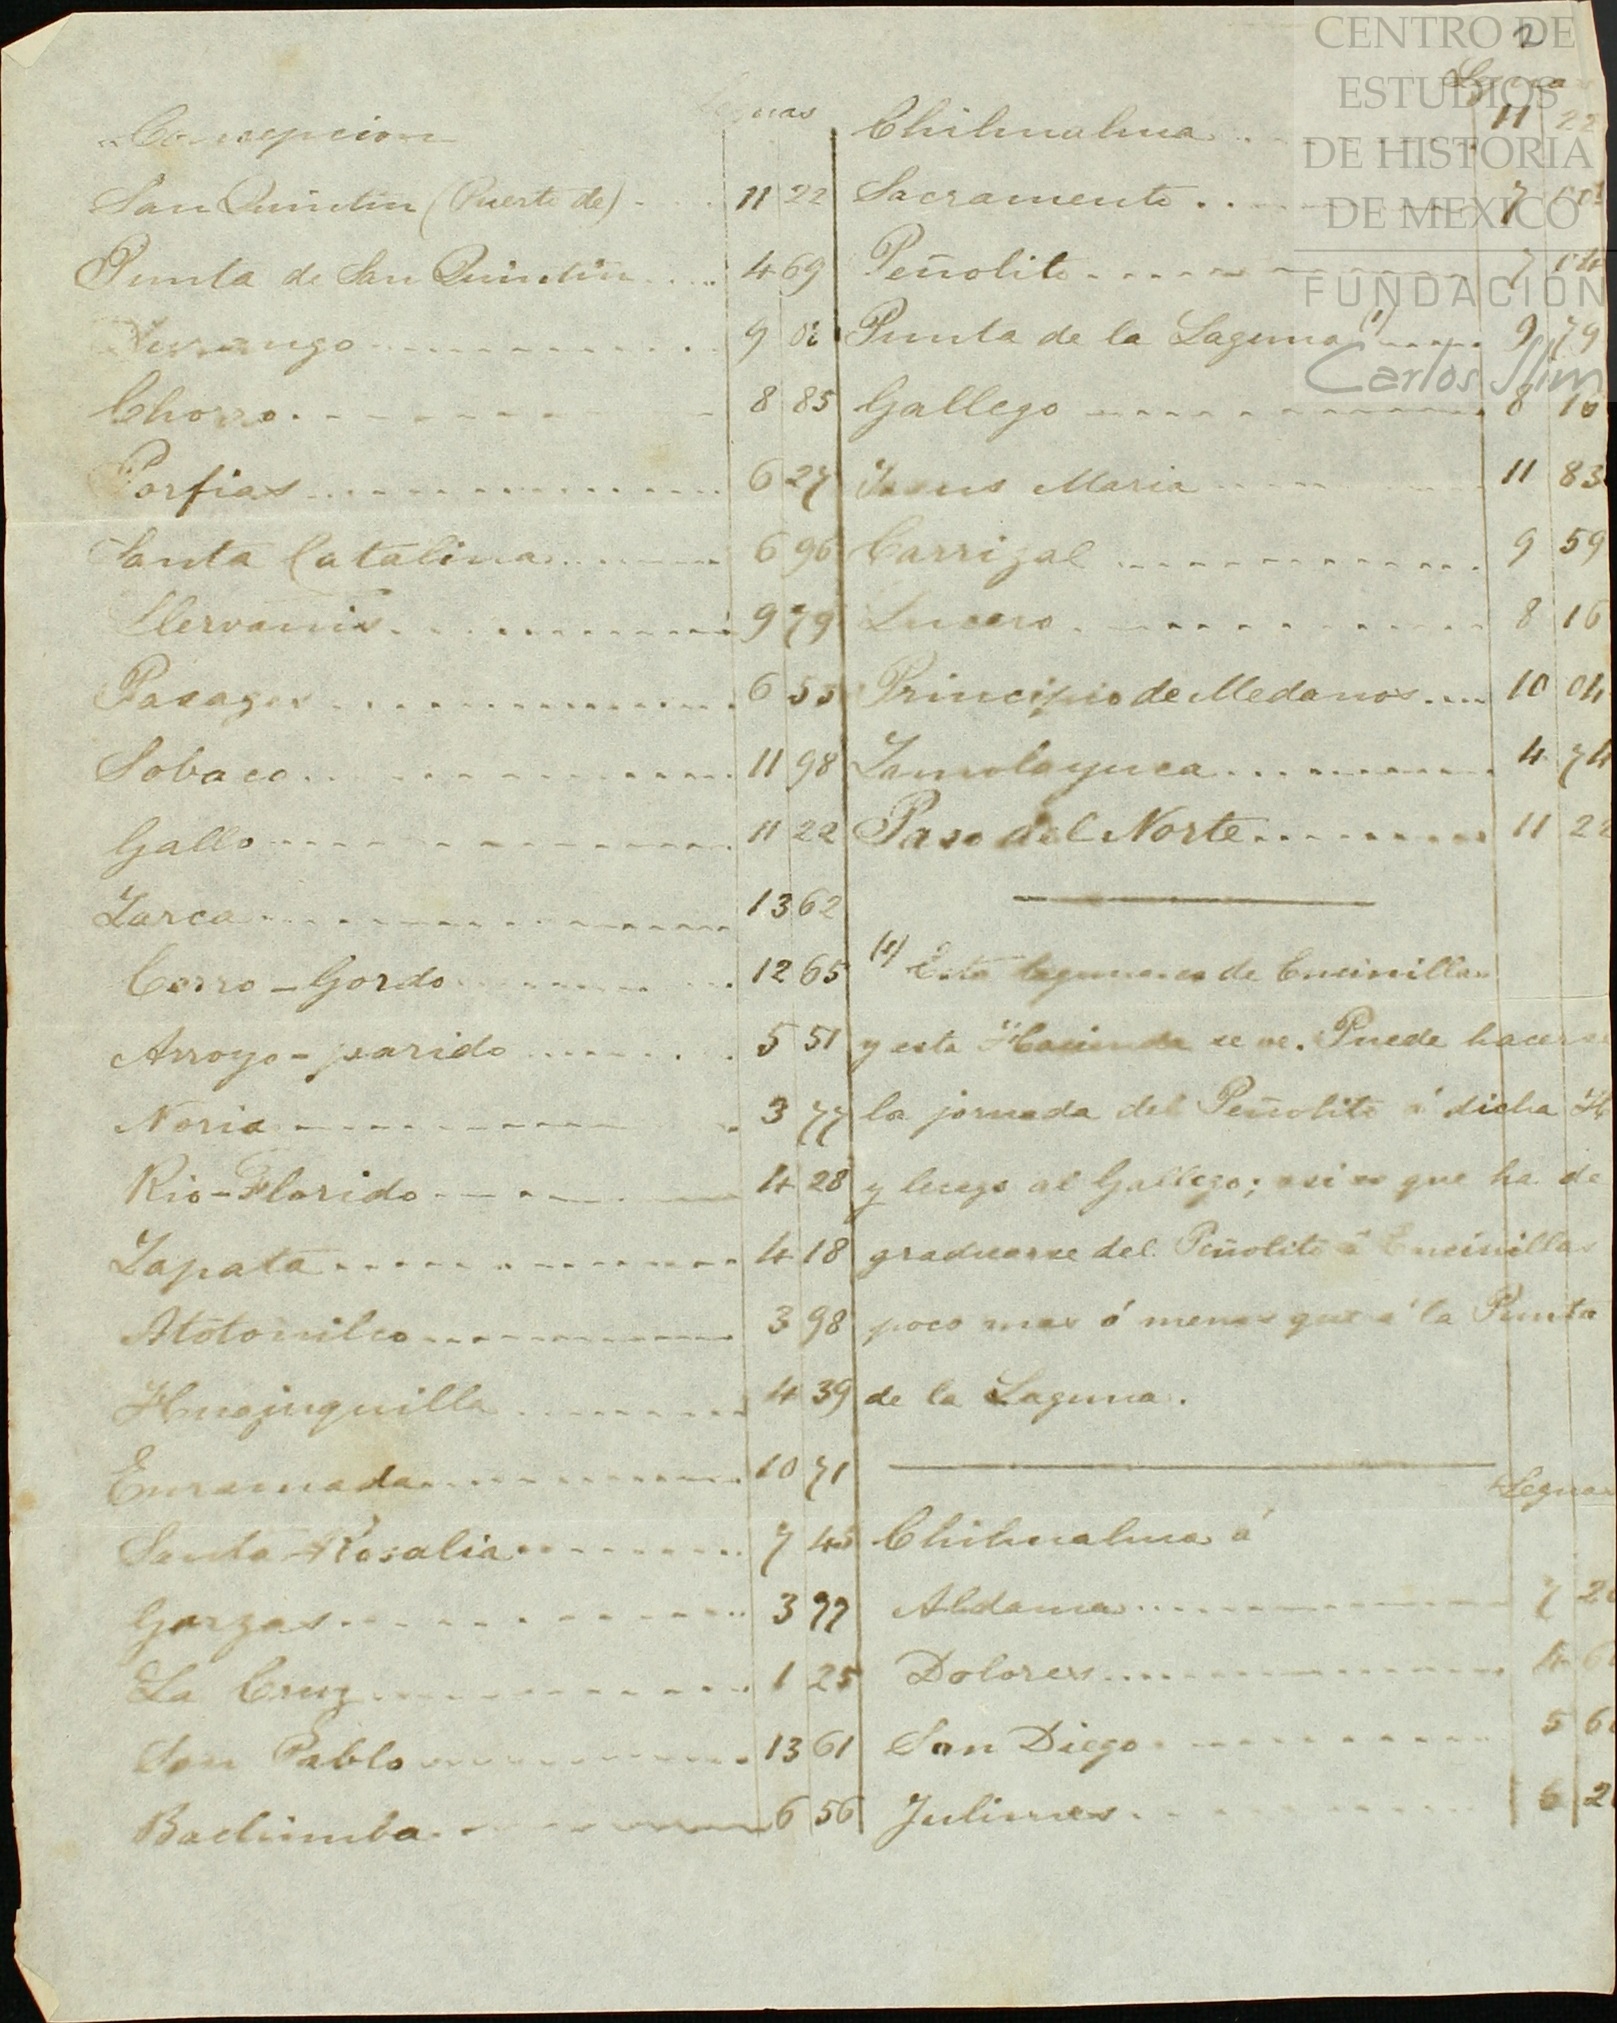 2
Leguas
Concepcion
San Quintin (Puerto de) 11 22
Punta de San Quintin 4 69
Durango 9
Chorro 8 85
Porfias 6 27
Santa Catalina 6 96
9 79
Pasages 6 55
Sobaco 11 98
Gallo 11 22
Zarca 13 62
Cerro-Gordo 12 65
Arroyo-parido 5 51
Noria 3 77
Rio-Florido 4 28
Zapata 4 18
Atotonilco 3 98
Huajuquilla 4 39
Enramada 10 71
Santa Rosalia 7 45
Garzas 3 77
La Cruz 1 25
San Pablo 13 61
Bachimba 6 56
Leguas
Chihuahua 11 22
Sacramento 7
Peñolito 7
Punta de la Laguna (1) 9 79
Gallego 8 16
Jesus Maria 11 83
Carrizal 9 59
Lucero 8 16
Principio de Medanos 10 04
Zamolayuca 4 74
Paso del Norte 11 22
(1) Esta laguna es de Encinillas
y esta Hacienda se ve. Puede hacerse
la jornada del Peñolito á dicha H
y luego al Gallego; asi es que ha de
graduarse del Peñolito á Encinillas
poco mas ó menos que á la Punta
de la Laguna.
Leguas
Chihuahua á
Aldama 7
Dolores 4
San Diego 5
Julimes 6
CENTRO DE
ESTUDIOS
DE HISTORIA
DE MEXICO
FUNDACIÓN
Carlos Slim